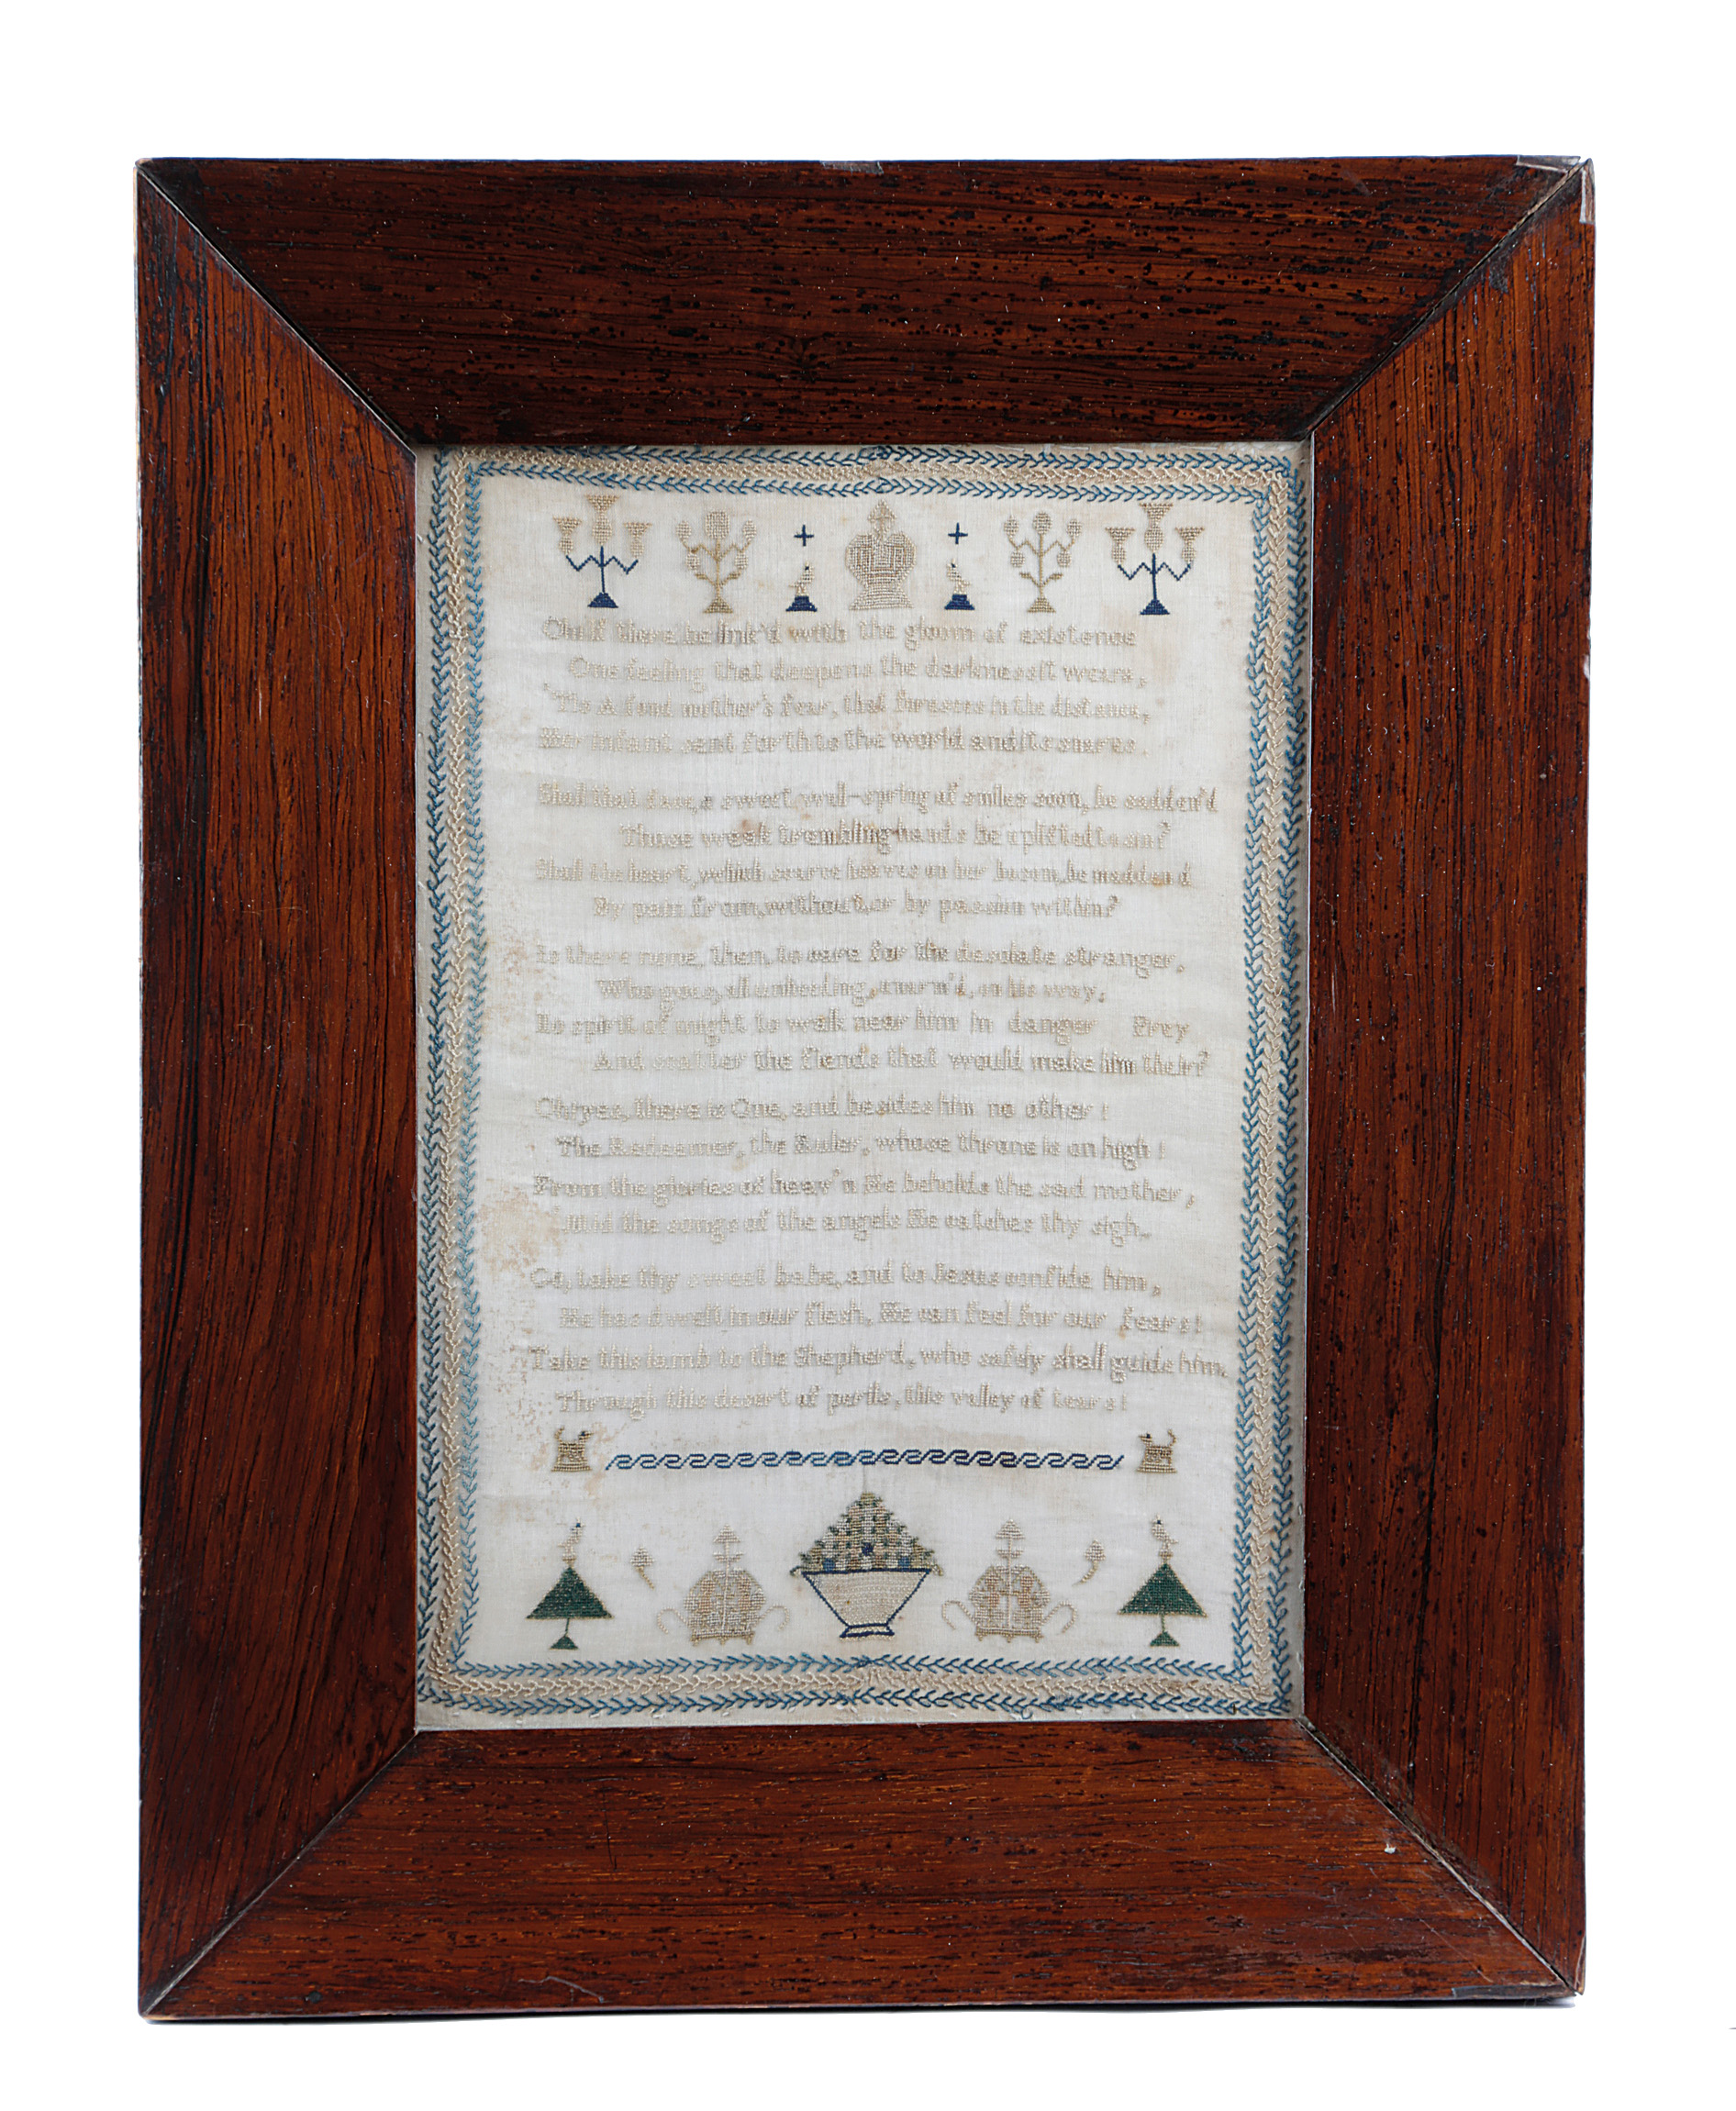 Oh! if there be link'd with the gloom of existence
One feeling that deepens the darkness it wears,
'Tis A fond mother's fear, that foresees in the distance,
Her infant sent forth to the world and its snares.
Shall that face, a sweet well-spring of smiles soon, be sadden'd
Those weak trembling hands be uplifted to sin?
Shall the heart, which scarce heaves on her bosom, be madden'd
By pain from without, or by passion within?
Is there none, then, to care for the desolate stranger,
Who goes, all unheeding, unarm'd, on his way,
No spirit of might to walk near him in danger Prey
And scatter the fiends that would make him their?
Oh! yes, there is One, and besides him no other!
The Redeemer, the Ruler, whose throne is on high!
From the glories of heav'n He beholds the sad mother,
Mid the songs of the angels He catches thy sigh.
Go, take thy sweet babe, and to Jesus confide him,
He has dwelt in our flesh, He can feel for our fears!
Take this lamb to the Shepherd, who safely shall guide him,
Through this desert of perils, this valley of tears!